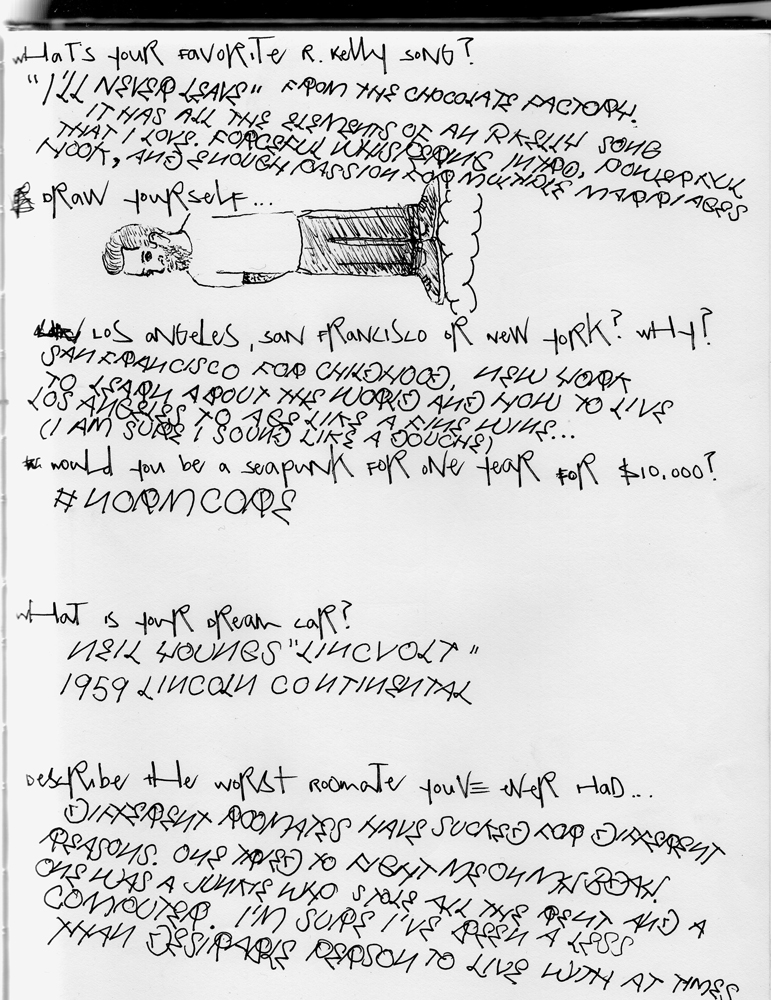 WHAT'S YOUR FAVORITE R. KELLY SONG?
"I'LL NEVER LEAVE" FROM THE CHOCOLATE FACTORY.
IT HAS ALL THE ELEMENTS OF AN R KELLY SONG
THAT I LOVE. FORCEFUL WHISPERING INTRO, POWERFUL
HOOK, AND ENOUGH PASSION FOR MULTIPLE MARRIAGES
DRAW YOURSELF...
LOS ANGELES, SAN FRANCISCO OR NEW YORK? WHY?
SAN FRANCISCO FOR CHILDHOOD, NEW YORK
TO LEARN ABOUT THE WORLD AND HOW TO LIVE
LOS ANGELES TO AGE LIKE A FINE WINE...
(I AM SURE I SOUND LIKE A DOUCHE)
WOULD YOU BE A SEAPUNK FOR ONE YEAR FOR $10,000?
#NORMCORE
WHAT IS YOUR DREAM CAR?
NEIL YOUNGS "LINCVOLT"
1959 LINCOLN CONTINENTAL
DESCRIBE THE WORST ROOMATE YOU'VE EVER HAD...
DIFFERENT ROOMATES HAVE SUCKED FOR DIFFERENT
REASONS. ONE TRIED TO FIGHT ME ON MY BDAY.
ONE WAS A JUNKIE WHO STOLE ALL THE RENT AND A
COMPUTER. I'M SURE I'VE BEEN A LESS
THAN DESIRABLE PERSON TO LIVE WITH AT TIMES